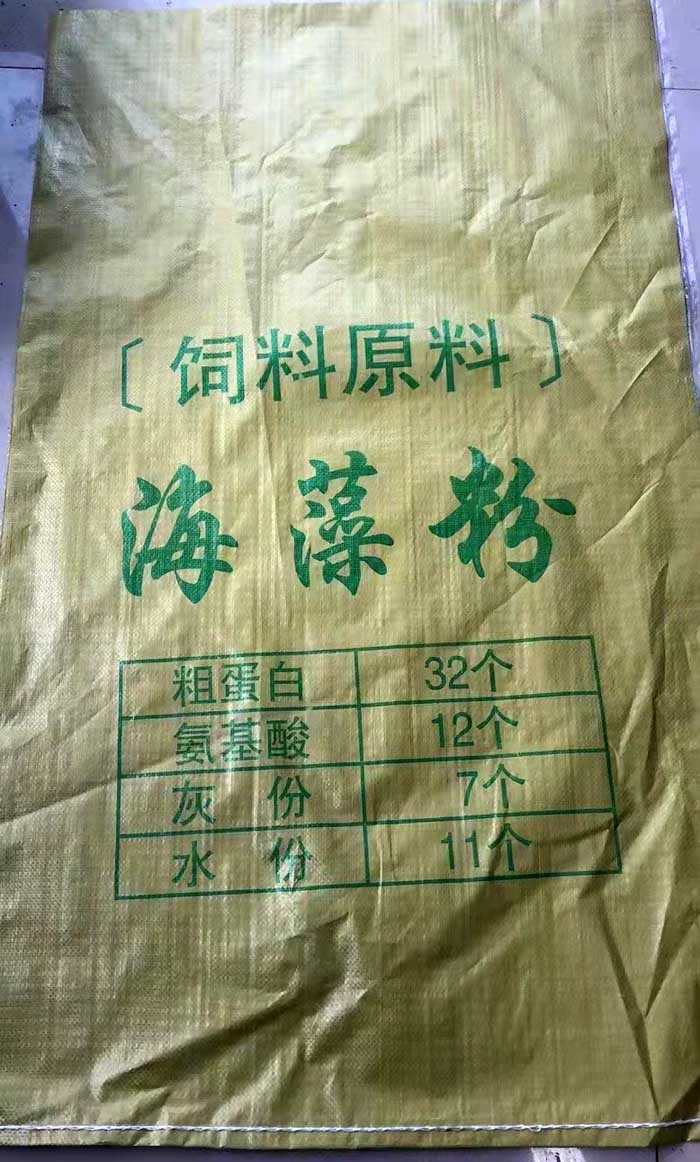 〔饲料原料〕
海藻粉
粗蛋白 32个
氨基酸 12个
灰 份 7个
水 份 11个